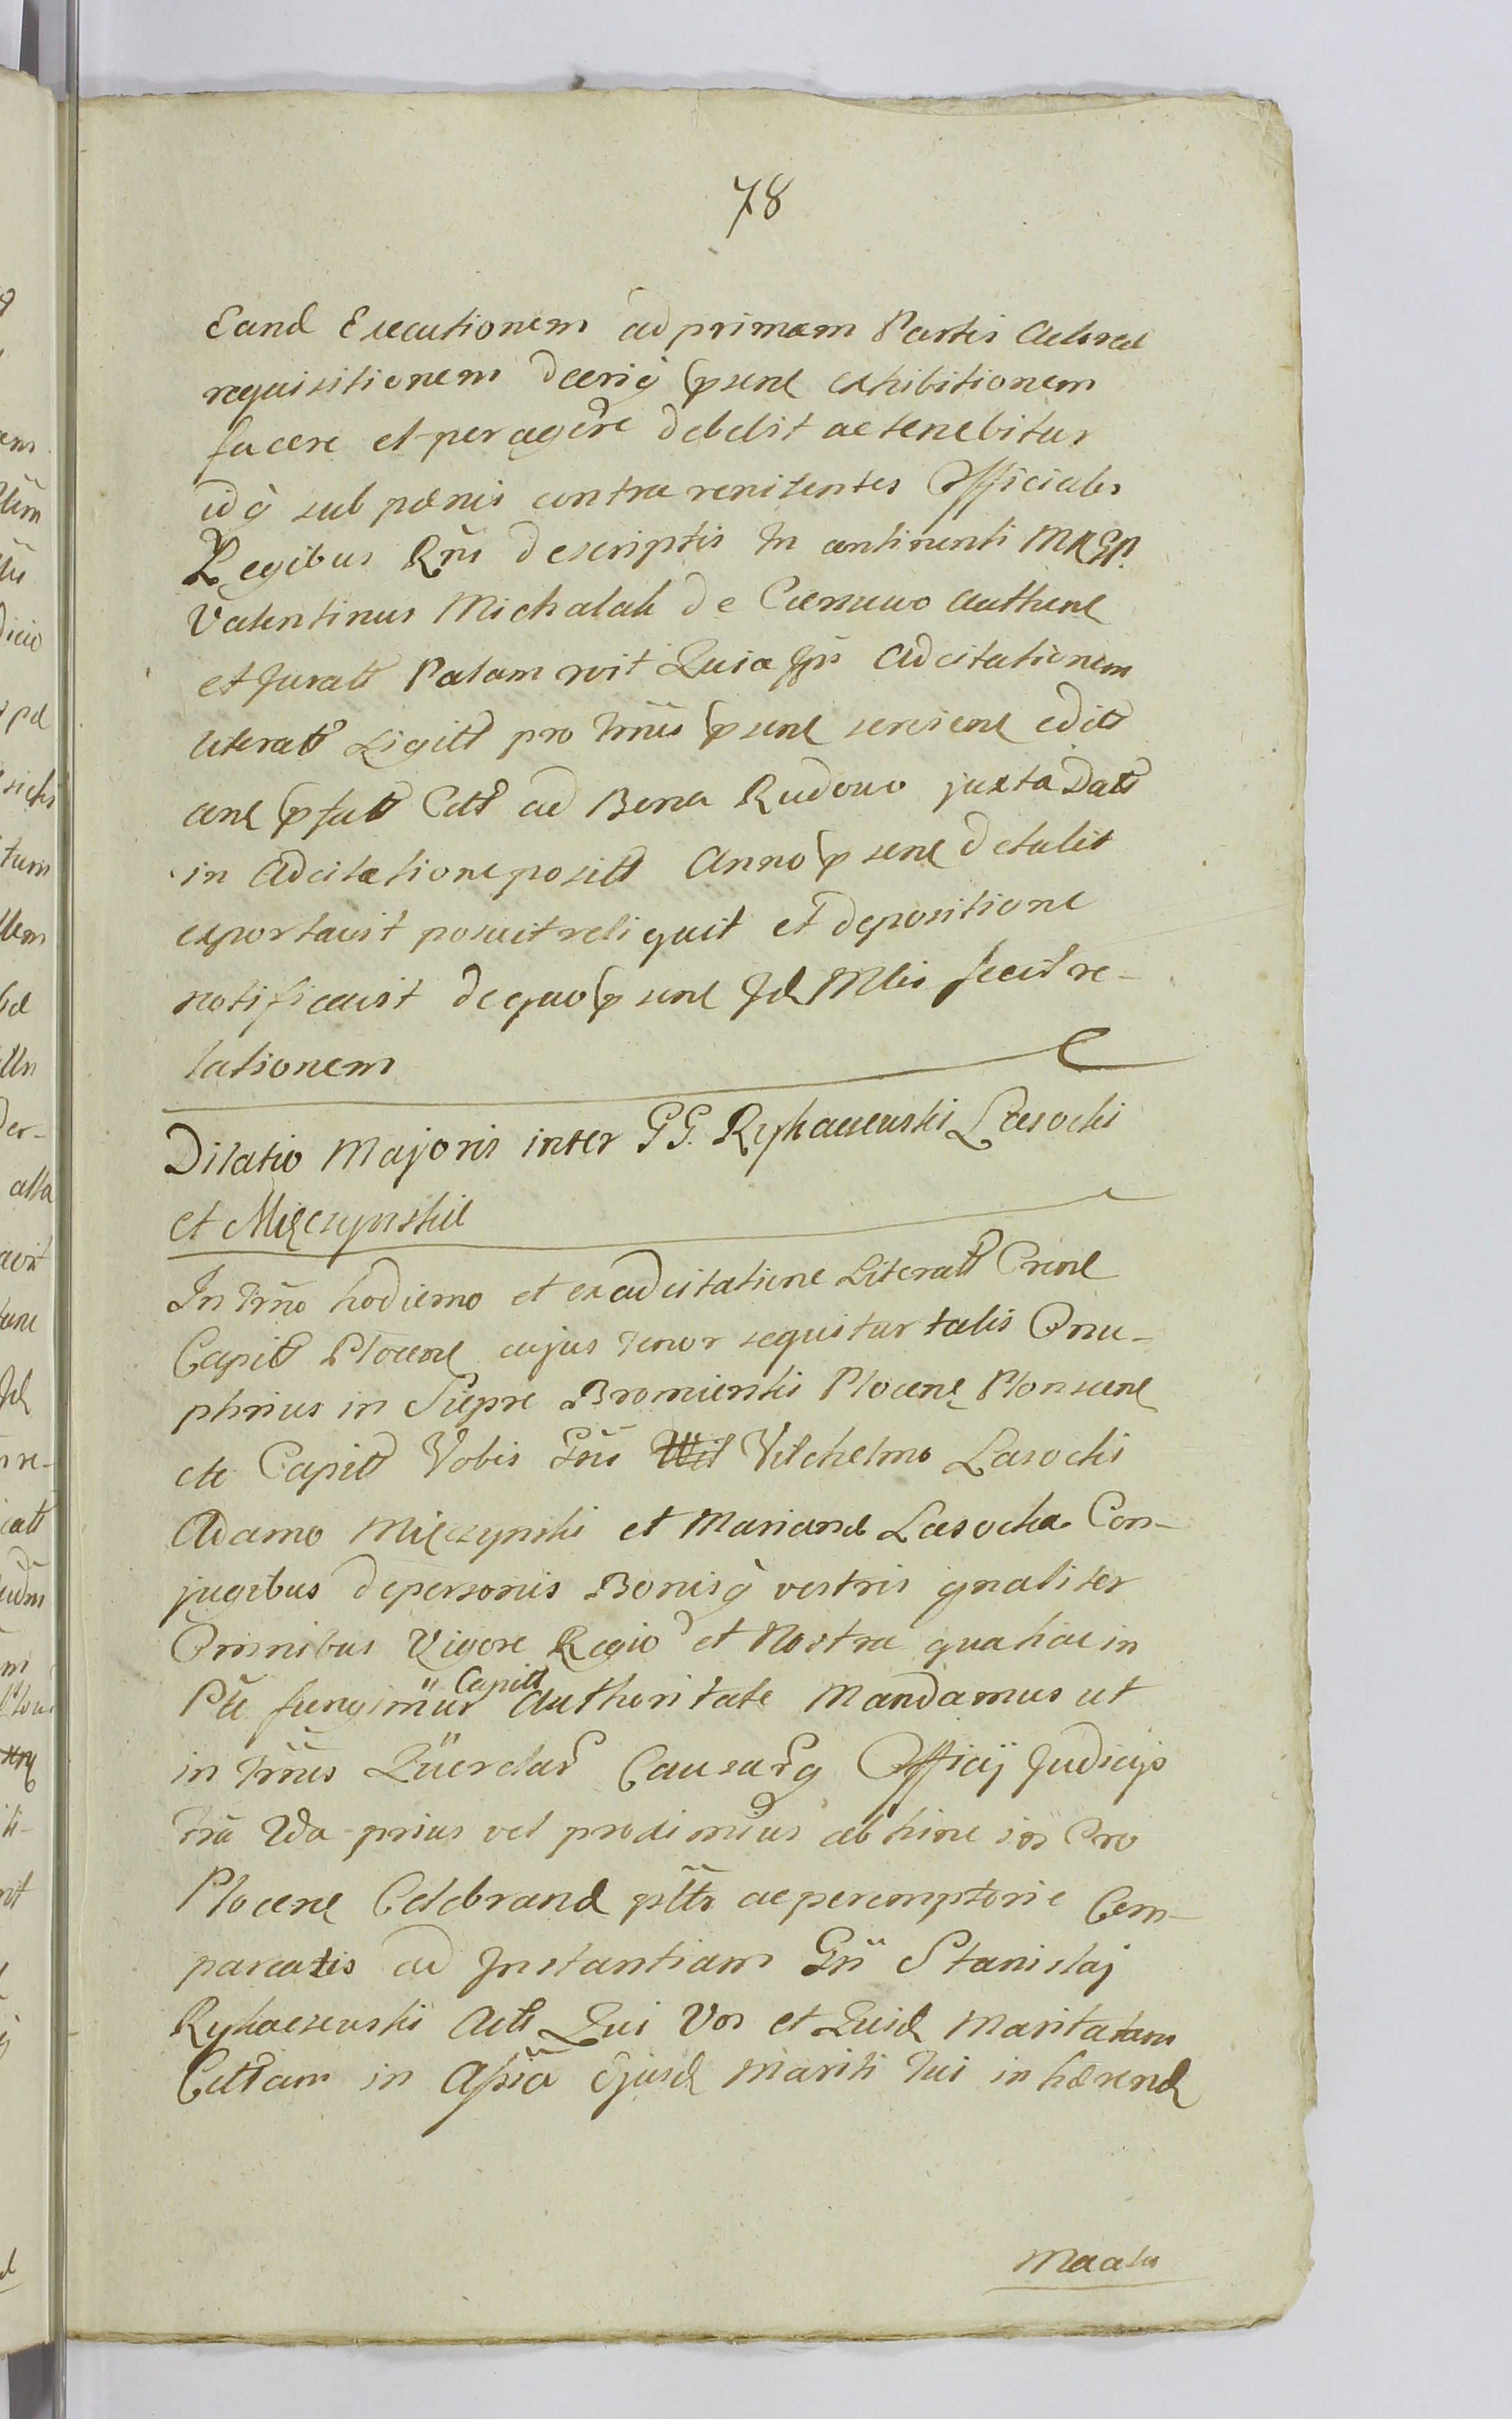 78
Eand Executionem ad primam Partis Actorea
requisitionem dcerig psene exhibitionem
facere et peragere debebit ac tenebitur
idq sub pœnis contra renitentes Officiales
Legibus Rni descriptis In continenti MRGP.
Valentinus Michalak de authene
et Juratt Palam rvit Quia Adcitationem
literatt Sigill pro Trnis psene edit
ane pfatt Citt ad Bona Rudowo juxta Datt
in Adcitatione positt Anno psene detulit
exportavit posuit reliquit et depositione
notificavit de quo psene Jd Mlis fecit re-
lationem
Dilatio Majoris inter GG. Rykaczewski Lasocki
et Mięczynskie
In Trno hodierno et ex adcitatione Literatt Crene
Capitt Plocene cujus tenor sequitur talis Onu-
phrius in Siepre Bromierski Plocene Plonscene
etc Capitt Vobis Gnis Wil Vilchelmo Lasocki
Adamo Mięczynski et Mariane Lasocka Con-
jugibus de personis Bonisq vestris gnaliter
Omnibus Vigore Regio et Nostra qua hac in
Pte fungimur Capitt Authoritate Mandamus ut
in Trnis Querelar Causarq Officij Judicijs
Fria 2da prius vel proximius ab hinc in Cro
Plocene Celebrand psltr ac peremptorie Com-
pareatis ad Instantiam Gni Stanislaj
Rykaczewski Actt Qui Vos et Quid Maritatam
Cittam in Assia Ejusd Mariti Tui inhærend